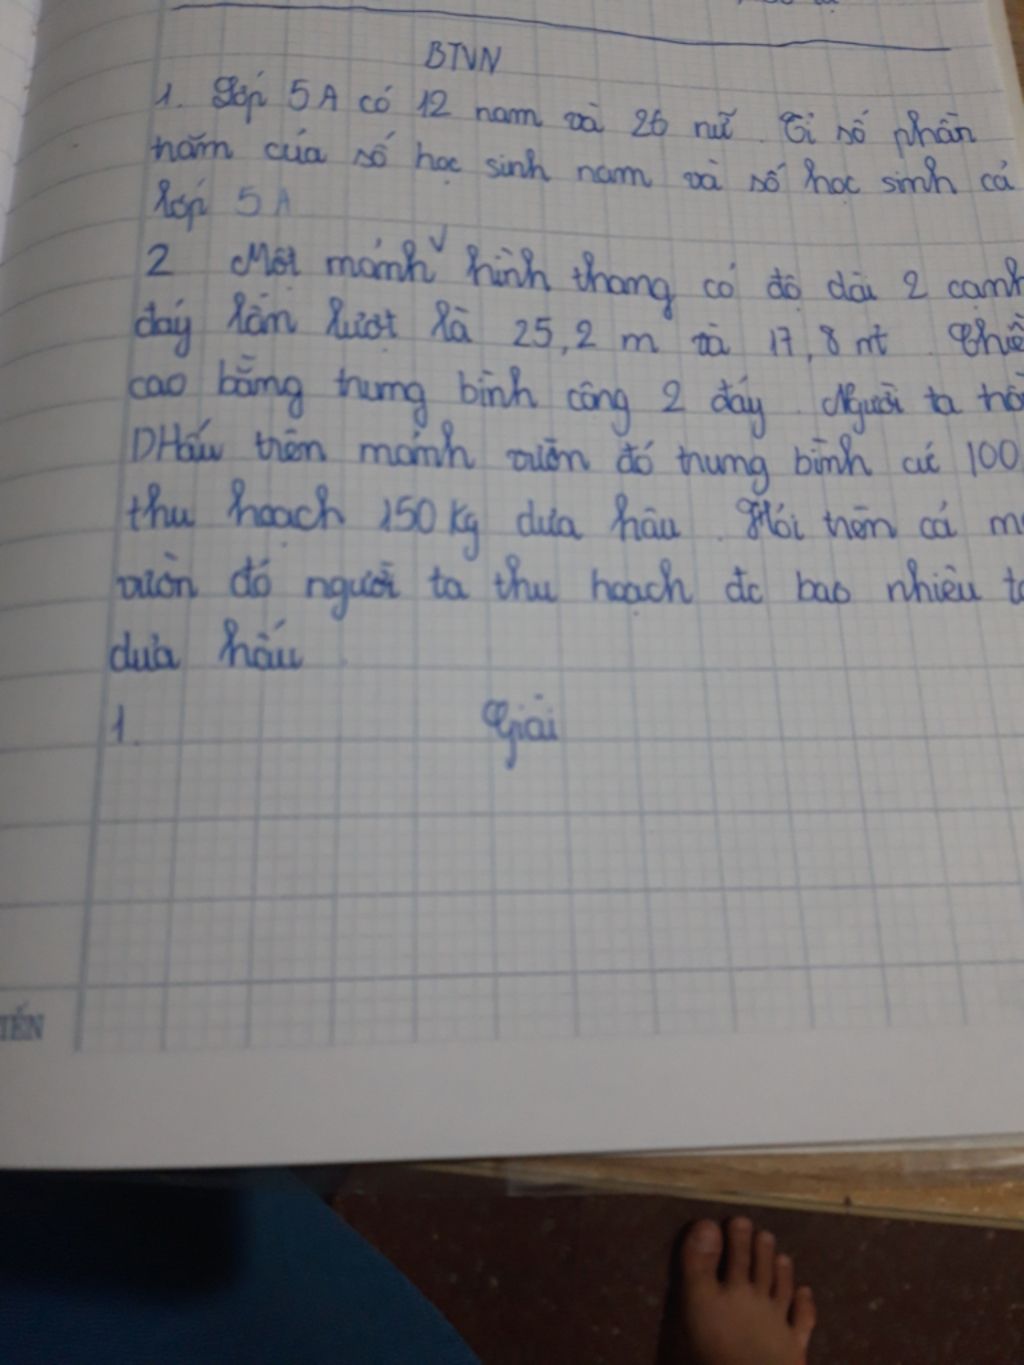 BTVN
1. Lớp 5A có 12 nam và 26 nữ. Tỉ số phần
trăm của số học sinh nam và số học sinh cả
lớp 5A
2 Một mảnh v hình thang có độ dài 2 cạnh
đáy lần lượt là 25,2 m và 17,8 m. Chiề
cao bằng trung bình cộng 2 đáy. Người ta
DHấu trên mảnh vườn đó trung bình cứ 100
thu hoạch 150 kg dưa hấu. Hỏi trên cả
vườn đó người ta thu hoạch đc bao nhiêu
dưa hấu
1. Giải
TIẾN